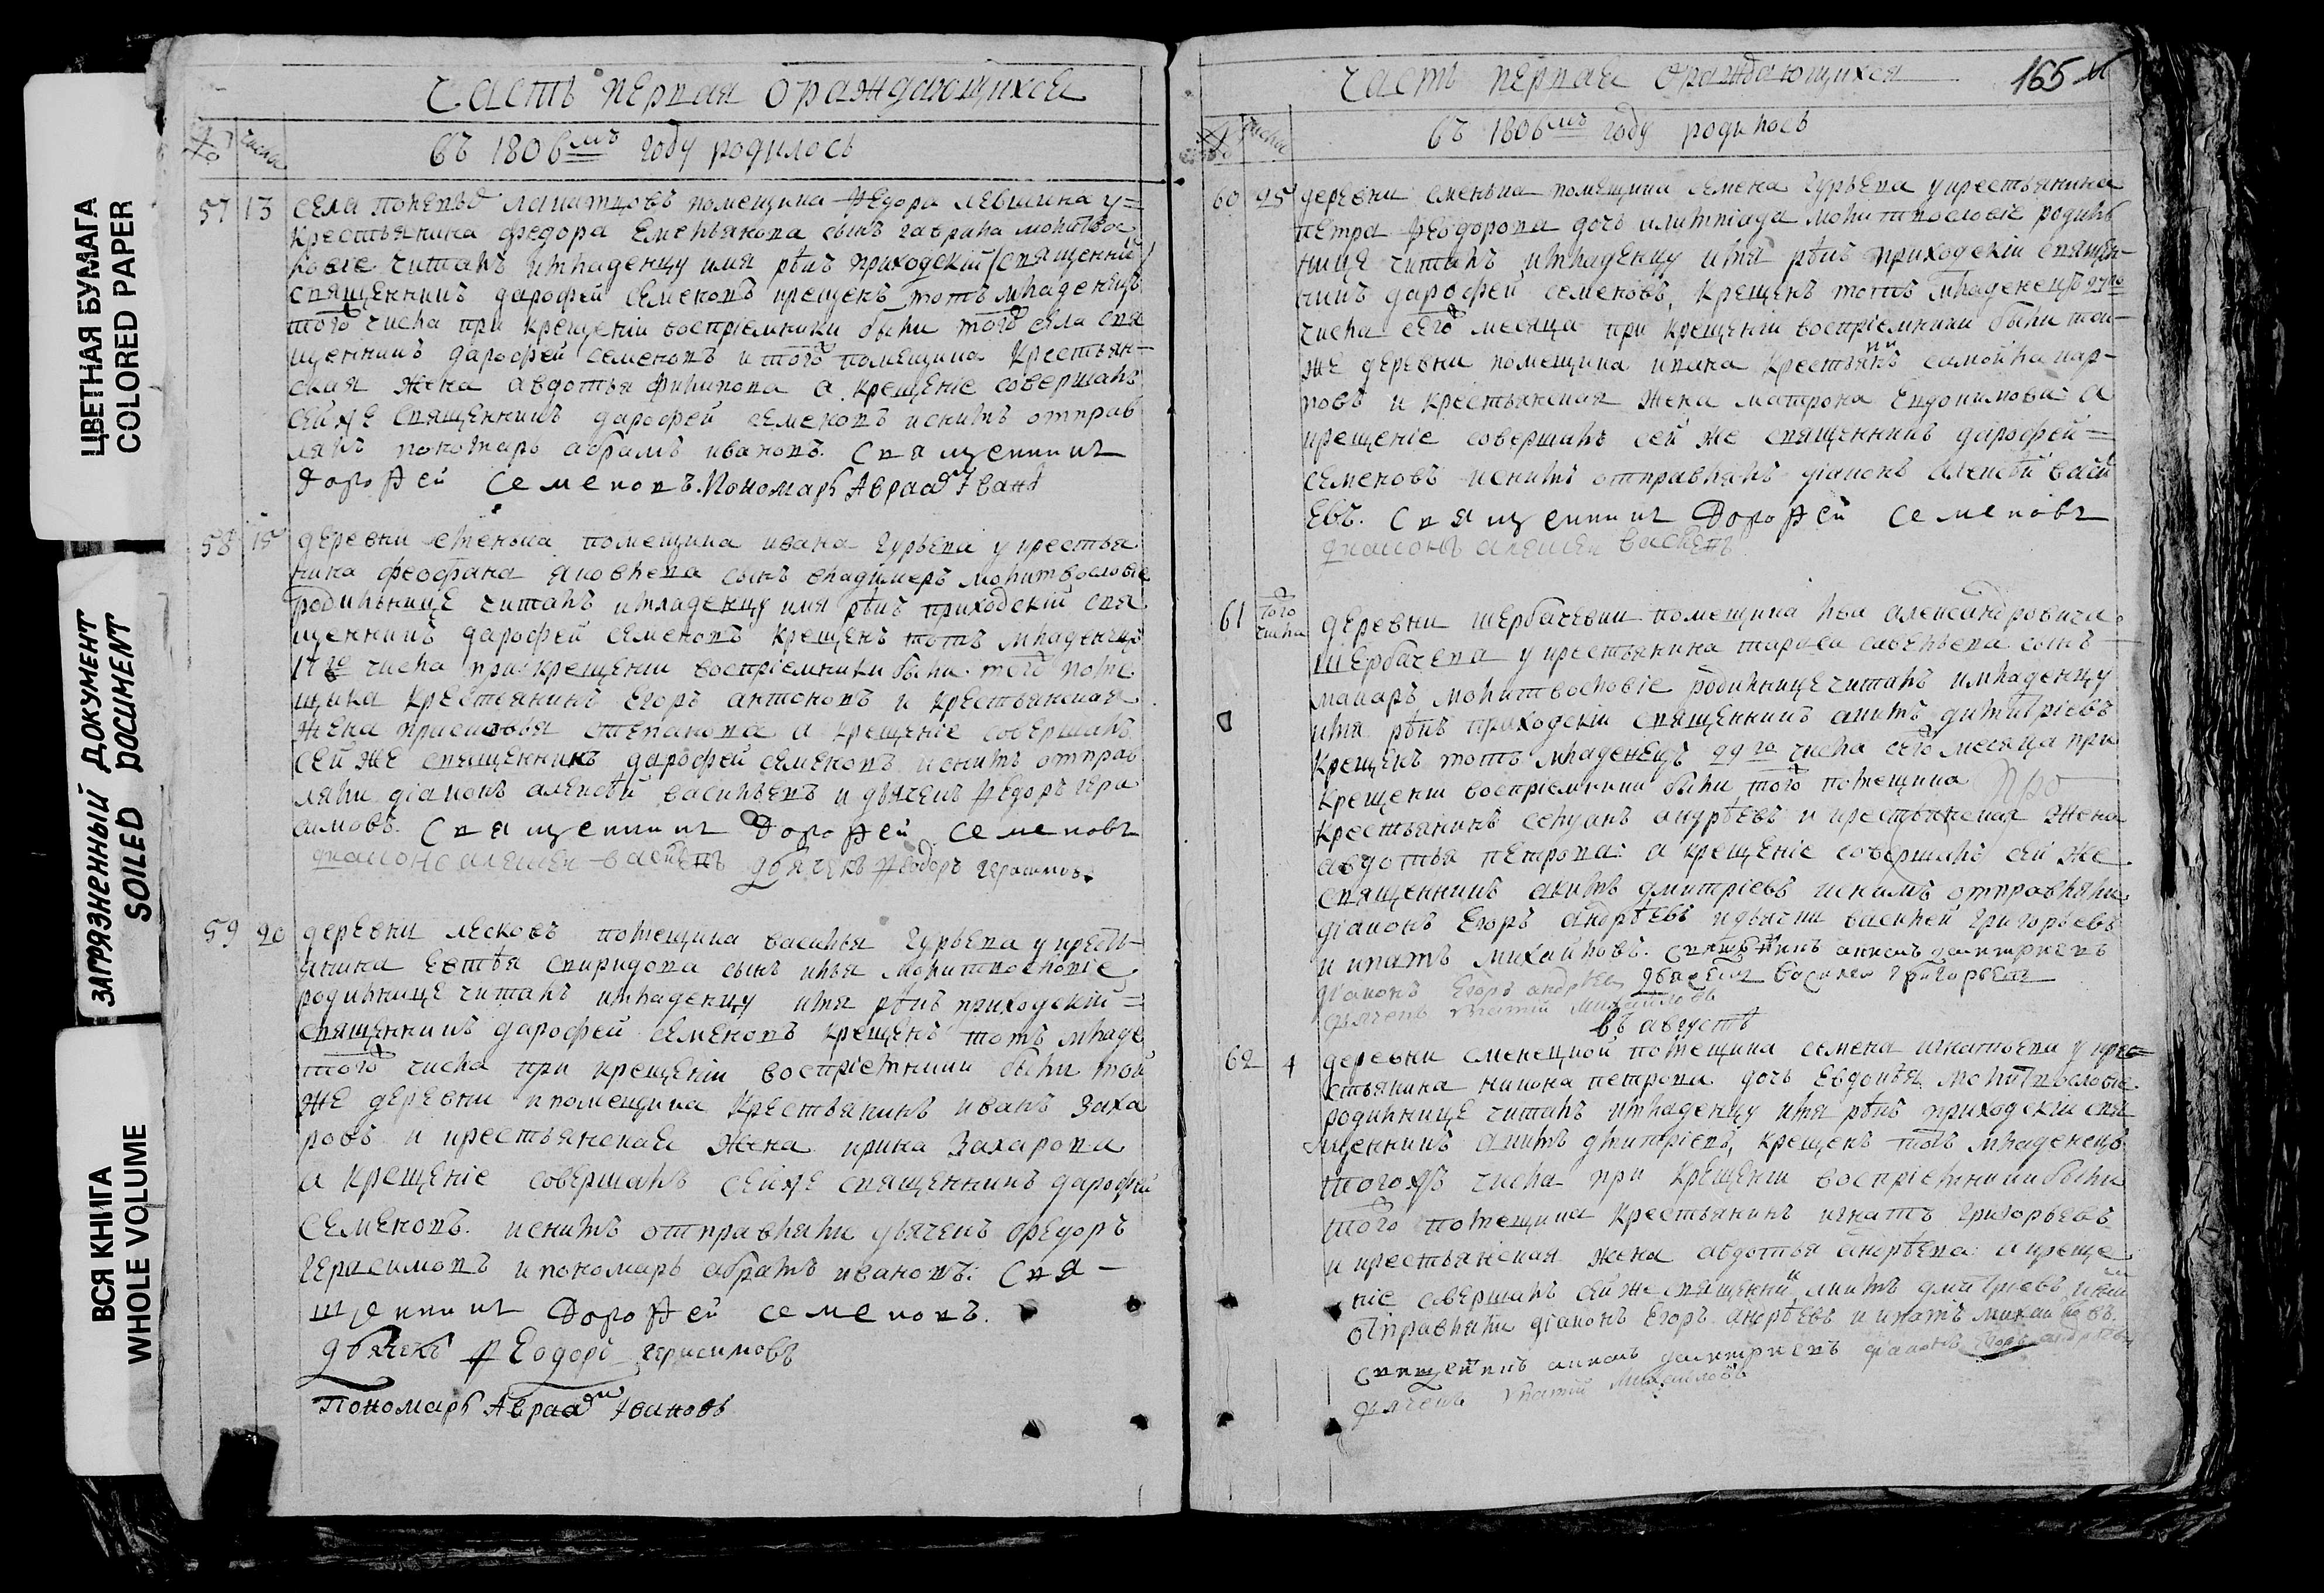 ЦВЕТНАЯ БУМАГА
COLORED PAPER
ЗАГРЯЗНЕННЫЙ ДОКУМЕНТ
SOILED DOCUMENT
ВСЯ КНИГА
WHOLE VOLUME
Часть первая ораждающихся
№ числа
въ 1806мъ году родилось
57 13 села помещика Федора Левшина у=
крестьянина федора Емельянова сынъ гаврила молитвос
ловие читалъ имладенцу имя рѣкъ приходскій (священникъ)
священникъ дарофей семеновъ крещенъ тотъ младенецъ
того числа при крещеніи воспріемники были того села свя
щенникъ дарофей семеновъ и того помещика крестьян-
ская жена авдотья филипова а крещеніе совершалъ
сей же священникъ дарофей семеновъ иснимъ отправ
лялъ пономарь абрамъ ивановъ. Священникъ
Дорофей Семеновъ. Пономарь Авраамъ Iвановъ
58 15 деревни помещика ивана гурьева у крестья
нина феофана яковлева сынъ владимеръ молитвословіе
родильнице читалъ имладенцу имя рѣкъ приходскій свя
щенникъ дарофей семеновъ крещенъ тотъ младенецъ
17го числа при крещеніи воспріемники были того поме
щика крестьянинъ Егоръ антоновъ и крестьянская
жена прасковья степанова а крещеніе совершалъ
сей же священникъ дарофей семеновъ иснимъ отправ
ляли діаконъ алексѣй васильевъ и дьячекъ федоръ гера
симовъ. Священникъ Дорофей Семеновъ
диаконъ алексей васильевъ дьячекъ феодоръ герасимовъ
59 20 деревни лесковъ помещика василья гурьева у кресть-
янина спиридова сынъ илья молитвословіе
родильнице читалъ имладенцу имя рѣкъ приходскій=
священникъ дарофей семеновъ крещенъ тотъ младе
того числа при крещеніи воспріемники были той
же деревни ипомещика крестьянинъ иванъ заха
ровъ и крестьянская жена ирина захарова
а крещеніе совершалъ сей же священникъ дарофей
семеновъ. иснимъ отправляли дьячекъ федоръ
герасимовъ ипономарь абрамъ ивановъ: Свя-
щенникъ Дорофей семеновъ.
дьячекъ феодоръ герасимовъ
Пономарь Авраамъ Iвановъ
Часть первая ораждающихся 165
№ числа
въ 1806мъ году родилось
60 25 деревни помещика семена гурьева у крестьянина
петра феодорова дочь молитвословіе родиль
нице читалъ имладенцу имя рѣкъ приходскій священ-
никъ дарофей семеновъ, крещенъ тотъ младенецъ 27го
числа сего месяца при крещеніи воспріемники были той
же деревни помещика ивана крестьянинъ самойла кар-
повъ и крестьянская жена матрона Евдокимова: а
крещеніе совершалъ сей же священникъ дарофей=
семеновъ иснимъ отправлялъ діаконъ алексѣй васил
евъ. Священникъ Дорофей Семеновъ
диаконъ алексей васильевъ
61 того числа деревни щербачевки помещика льва александровича
щербачева у крестьянина тараса савельева сынъ
макаръ молитвословіе родильнице читалъ имладенцу
имя рѣкъ приходскій священникъ дмитріевъ
крещенъ тотъ младенецъ 29го числа сего месяца при
крещеніи воспріемники были того помещика
крестьянинъ андрѣевъ и крестьянская жена
авдотья петрова: а крещеніе совершалъ сей же
священникъ дмитріевъ иснимъ отправляли
діаконъ Егоръ андрѣевъ идьячки василей григорьевъ
и ипатъ михайловъ. дмитриевъ
діаконъ Егоръ андрѣевъ дьячекъ василеи григорьевъ
дьячекъ ипатій михайловъ
въ августѣ
62 4 деревни помещика семена игнатьева у кре=
стьянина никона петрова дочь Евдокѣя молитвословіе
родильнице читалъ имладенцу имя рѣкъ приходскій свя
щенникъ дмитріевъ, крещенъ тотъ младенецъ
тогожъ числа при крещеніи воспріемники были
того помещика крестьянинъ игнатъ григорьевъ
и крестьянская жена авдотья андрѣева: а креще
ніе совершалъ сей же священникъ дмитріевъ иснимъ
отправляли діаконъ Егоръ андрѣевъ и ипатъ михайловъ.
дмитриевъ діаконъ Егоръ андрѣевъ
дьячекъ ипатій михайловъ